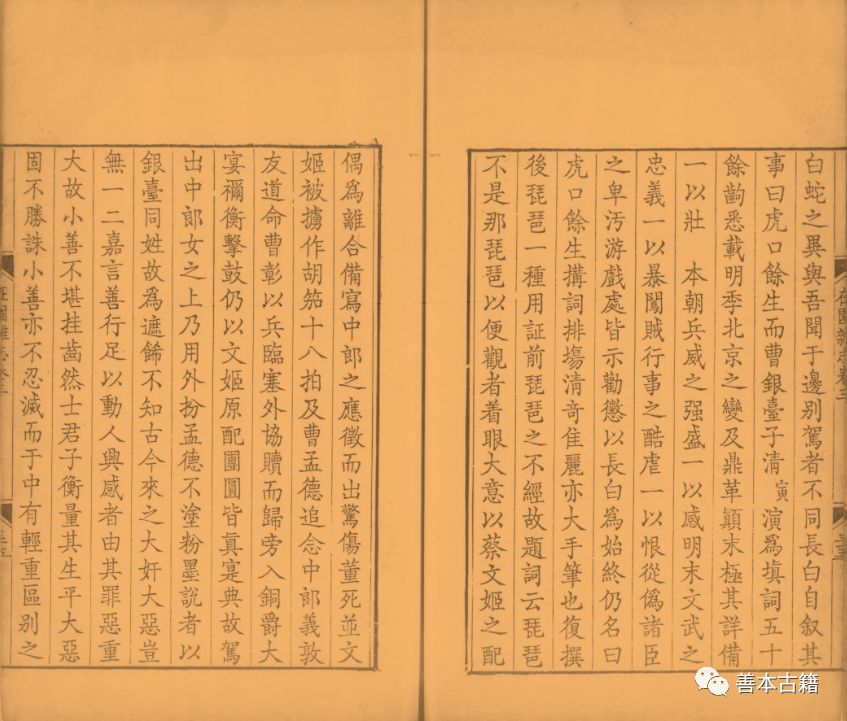 在園雜志卷三
白蛇之異與吾聞于邊别駕者不同長白自叙其
事曰虎口餘生而曹銀臺子清寅演爲填詞五十
餘齣悉載明季北京之變及鼎革顛末極其詳備
一以壯 本朝兵威之强盛一以感明末文武之
忠義一以暴闖賊行事之酷虐一以恨從僞諸臣
之卑汚游戲處皆示勸懲以長白爲始終仍名曰
虎口餘生搆詞排塲清竒佳麗亦大手筆也復撰
後琵琶一種用証前琵琶之不經故題詞云琵琶
不是那琵琶以便觀者着眼大意以蔡文姬之配
偶爲離合備寫中郎之應徵而出驚傷董死並文
姬被擄作胡笳十八拍及曹孟德追念中郎義敦
友道命曹彰以兵臨塞外協贖而歸旁入銅爵大
宴禰衡擊鼓仍以文姬原配團圓皆眞寔典故駕
出中郎女之上乃用外扮孟德不塗粉墨説者以
銀臺同姓故爲遮餙不知古今來之大奸大惡豈
無一二嘉言善行足以動人興感者由其罪惡重
大故小善不堪挂齒然士君子衡量其生平大惡
固不勝誅小善亦不忍滅而于中有輕重區别之
在園雜志卷三
善本古籍